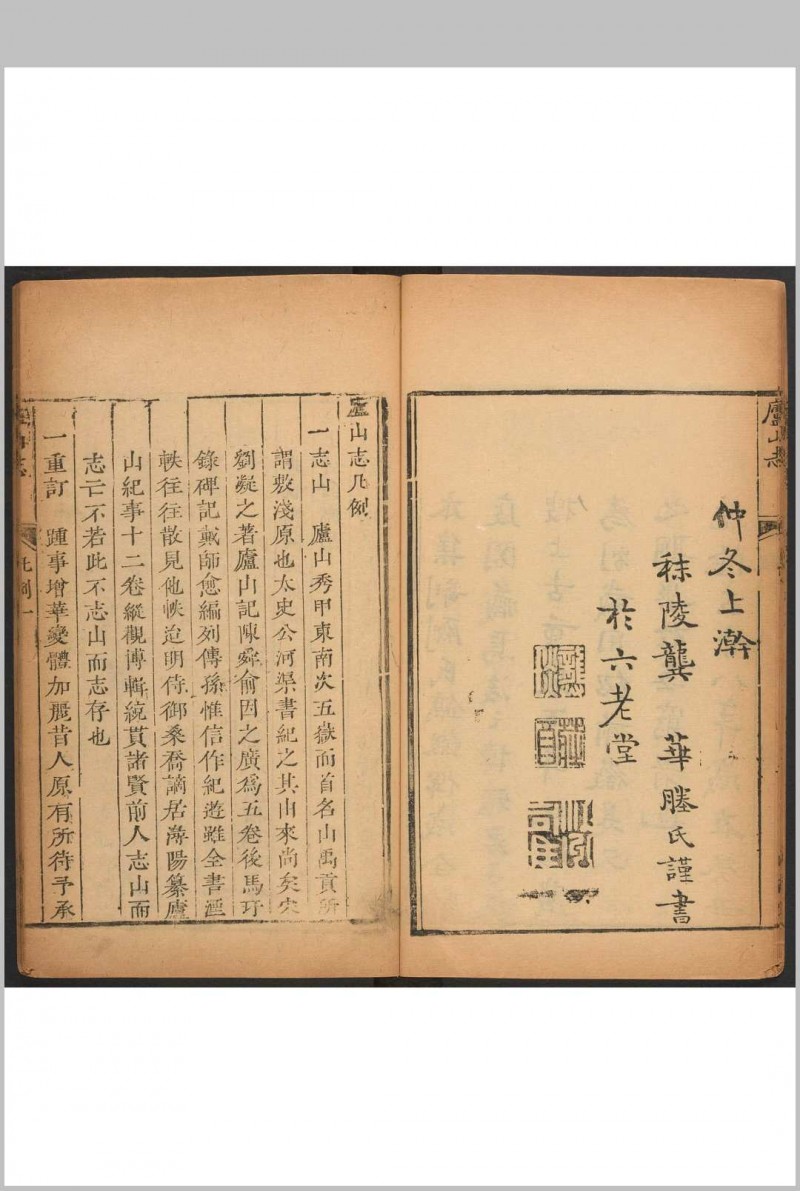 仲冬上澣
秣陵龔 華勝氏謹書
於六老堂
廬山志
廬山志凡例
一志山 廬山秀甲東南次五嶽而首名山禹貢所
謂敷淺原也太史公河渠書紀之其山來尚矣宋
劉凝之著廬山記陳舜俞因之廣為五卷後馬玗
錄碑記戴師愈編列傳孫惟信作紀遊雖全書湮
軼往往散見他帙迨明侍御桑喬謫居潯陽纂廬
山紀事十二卷縱觀博輯統貫諸賢前人志山而
志亡不若此不志山而志存也
一重訂 踵事增華變體加厲昔人原有所待予承
凡例一